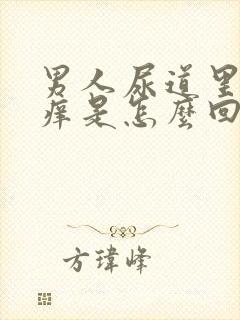 男人尿道里
痒是怎麼回
方瑋峰